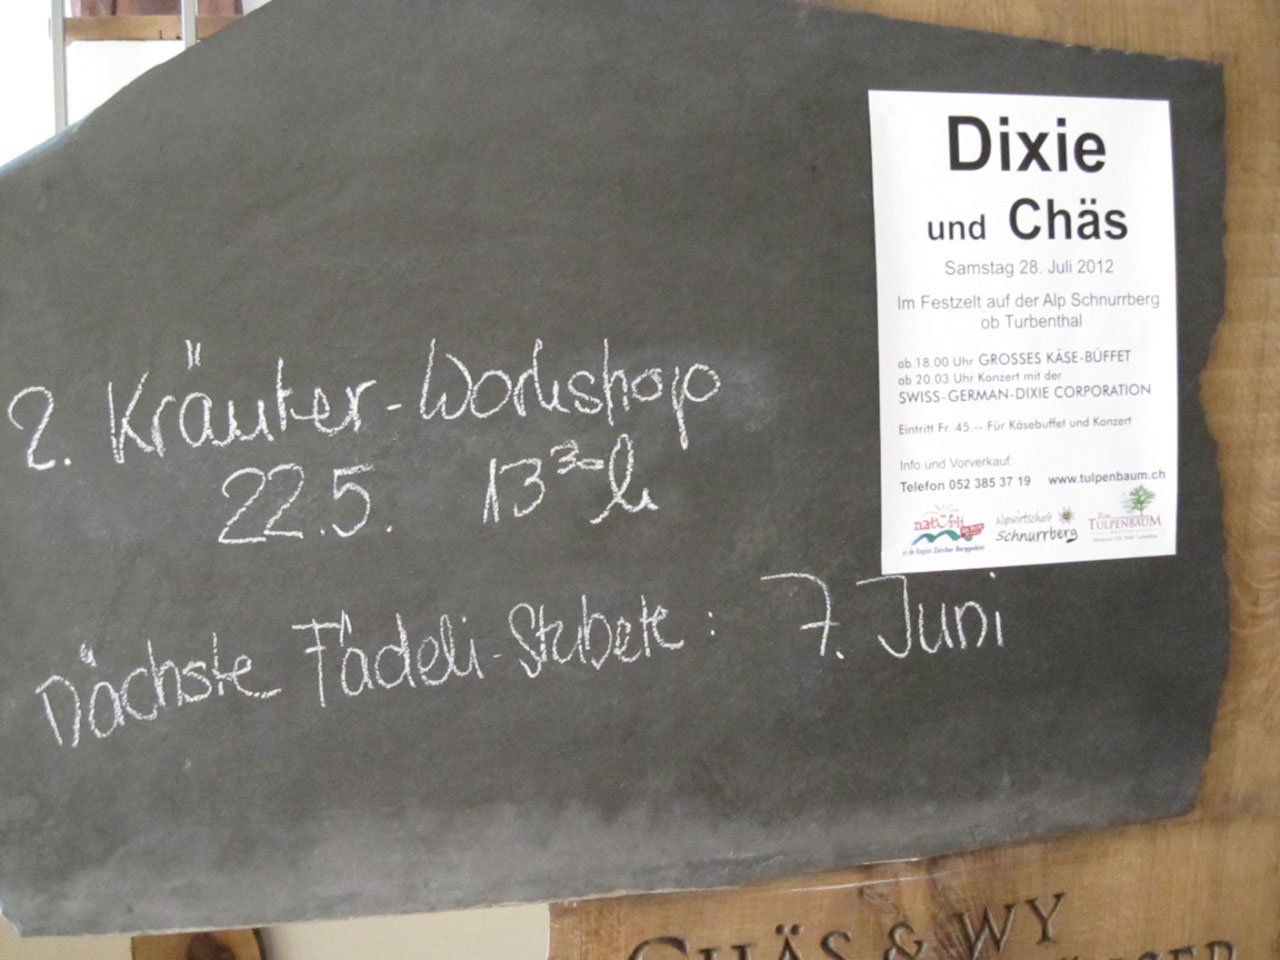 2. Kräuter-Workshop
22.5. 13³⁰h
Nächste Fädeli-Stubete: 7. Juni
Dixie
und Chäs
Samstag 28. Juli 2012
Im Festzelt auf der Alp Schnurrberg
ob Turbenthal
ab 18.00 Uhr GROSSES KÄSE-BÜFFET
ab 20.03 Uhr Konzert mit der
SWISS-GERMAN-DIXIE CORPORATION
Eintritt Fr. 45.-- Für Käsebuffet und Konzert
Info und Vorverkauf:
Telefon 052 385 37 19 www.tulpenbaum.ch
natürli
us de Region Zürcher Berggebiet
Alpwirtschaft
Schnurrberg
Zum
TULPENBAUM
CHÄS & WY